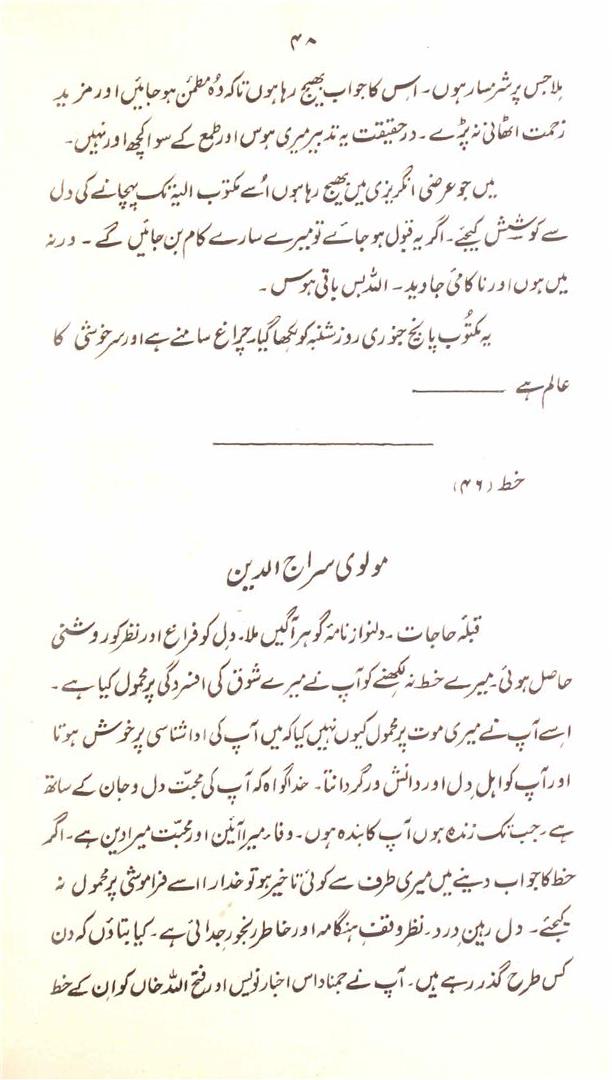 ۴۸
ملا جس پر شرمسار ہوں۔ اس کا جواب بھیج رہا ہوں تاکہ وُہ مطمئن ہو جائیں اور مزید
زحمت اٹھانی نہ پڑے۔ درحقیقت یہ تدبیر میری ہوس اور طمع کے سوا کچھ اور نہیں۔
میں جو عرضی انگریزی میں بھیج رہا ہوں اُسے مکتوب الیہ تک پہنچانے کی دل
سے کوشش کیجئے۔ اگر یہ قبول ہو جائے تو میرے سارے کام بن جائیں گے۔ ورنہ
میں ہوں اور ناکامیٔ جاوید۔ اللہ بس باقی ہوس۔
یہ مکتُوب پانچ جنوری روز شنبہ کو لکھا گیا۔ چراغ سامنے ہے اور سرخوشی کا
عالم ہے
خط (۴۶)
مولوی سراج الدین
قبلہ حاجات۔ دلنواز نامۂ گوہر آگیں ملا۔ دِل کو فراغ اور نظر کو روشنی
حاصل ہوئی۔ میرے خط نہ لکھنے کو آپ نے میرے شوق کی افسردگی پر محمول کیا ہے۔
اسے آپ نے میری موت پر محمول کیوں نہیں کیا کہ میں آپ کی ادا شناسی پر خوش ہوتا
اور آپ کو اہل دِل اور دانش ور گردانتا۔ خدا گواہ کہ آپ کی محبّت دل و جان کے ساتھ
ہے۔ جب تک زندہ ہوں آپ کا بندہ ہوں۔ وفا میرا آئین اور محبّت میرا دین ہے۔ اگر
خط کا جواب دینے میں میری طرف سے کوئی تاخیر ہو تو خدارا اسے فراموشی پر محمول نہ
کیجئے۔ دل رہین درد۔ نظر وقفِ ہنگامہ اور خاطر رنجور جدائی ہے۔ کیا بتاؤں کہ دن
کس طرح گذر رہے ہیں۔ آپ نے جمناداس اخبار نویس اور فتح اللہ خاں کو ان کے خط